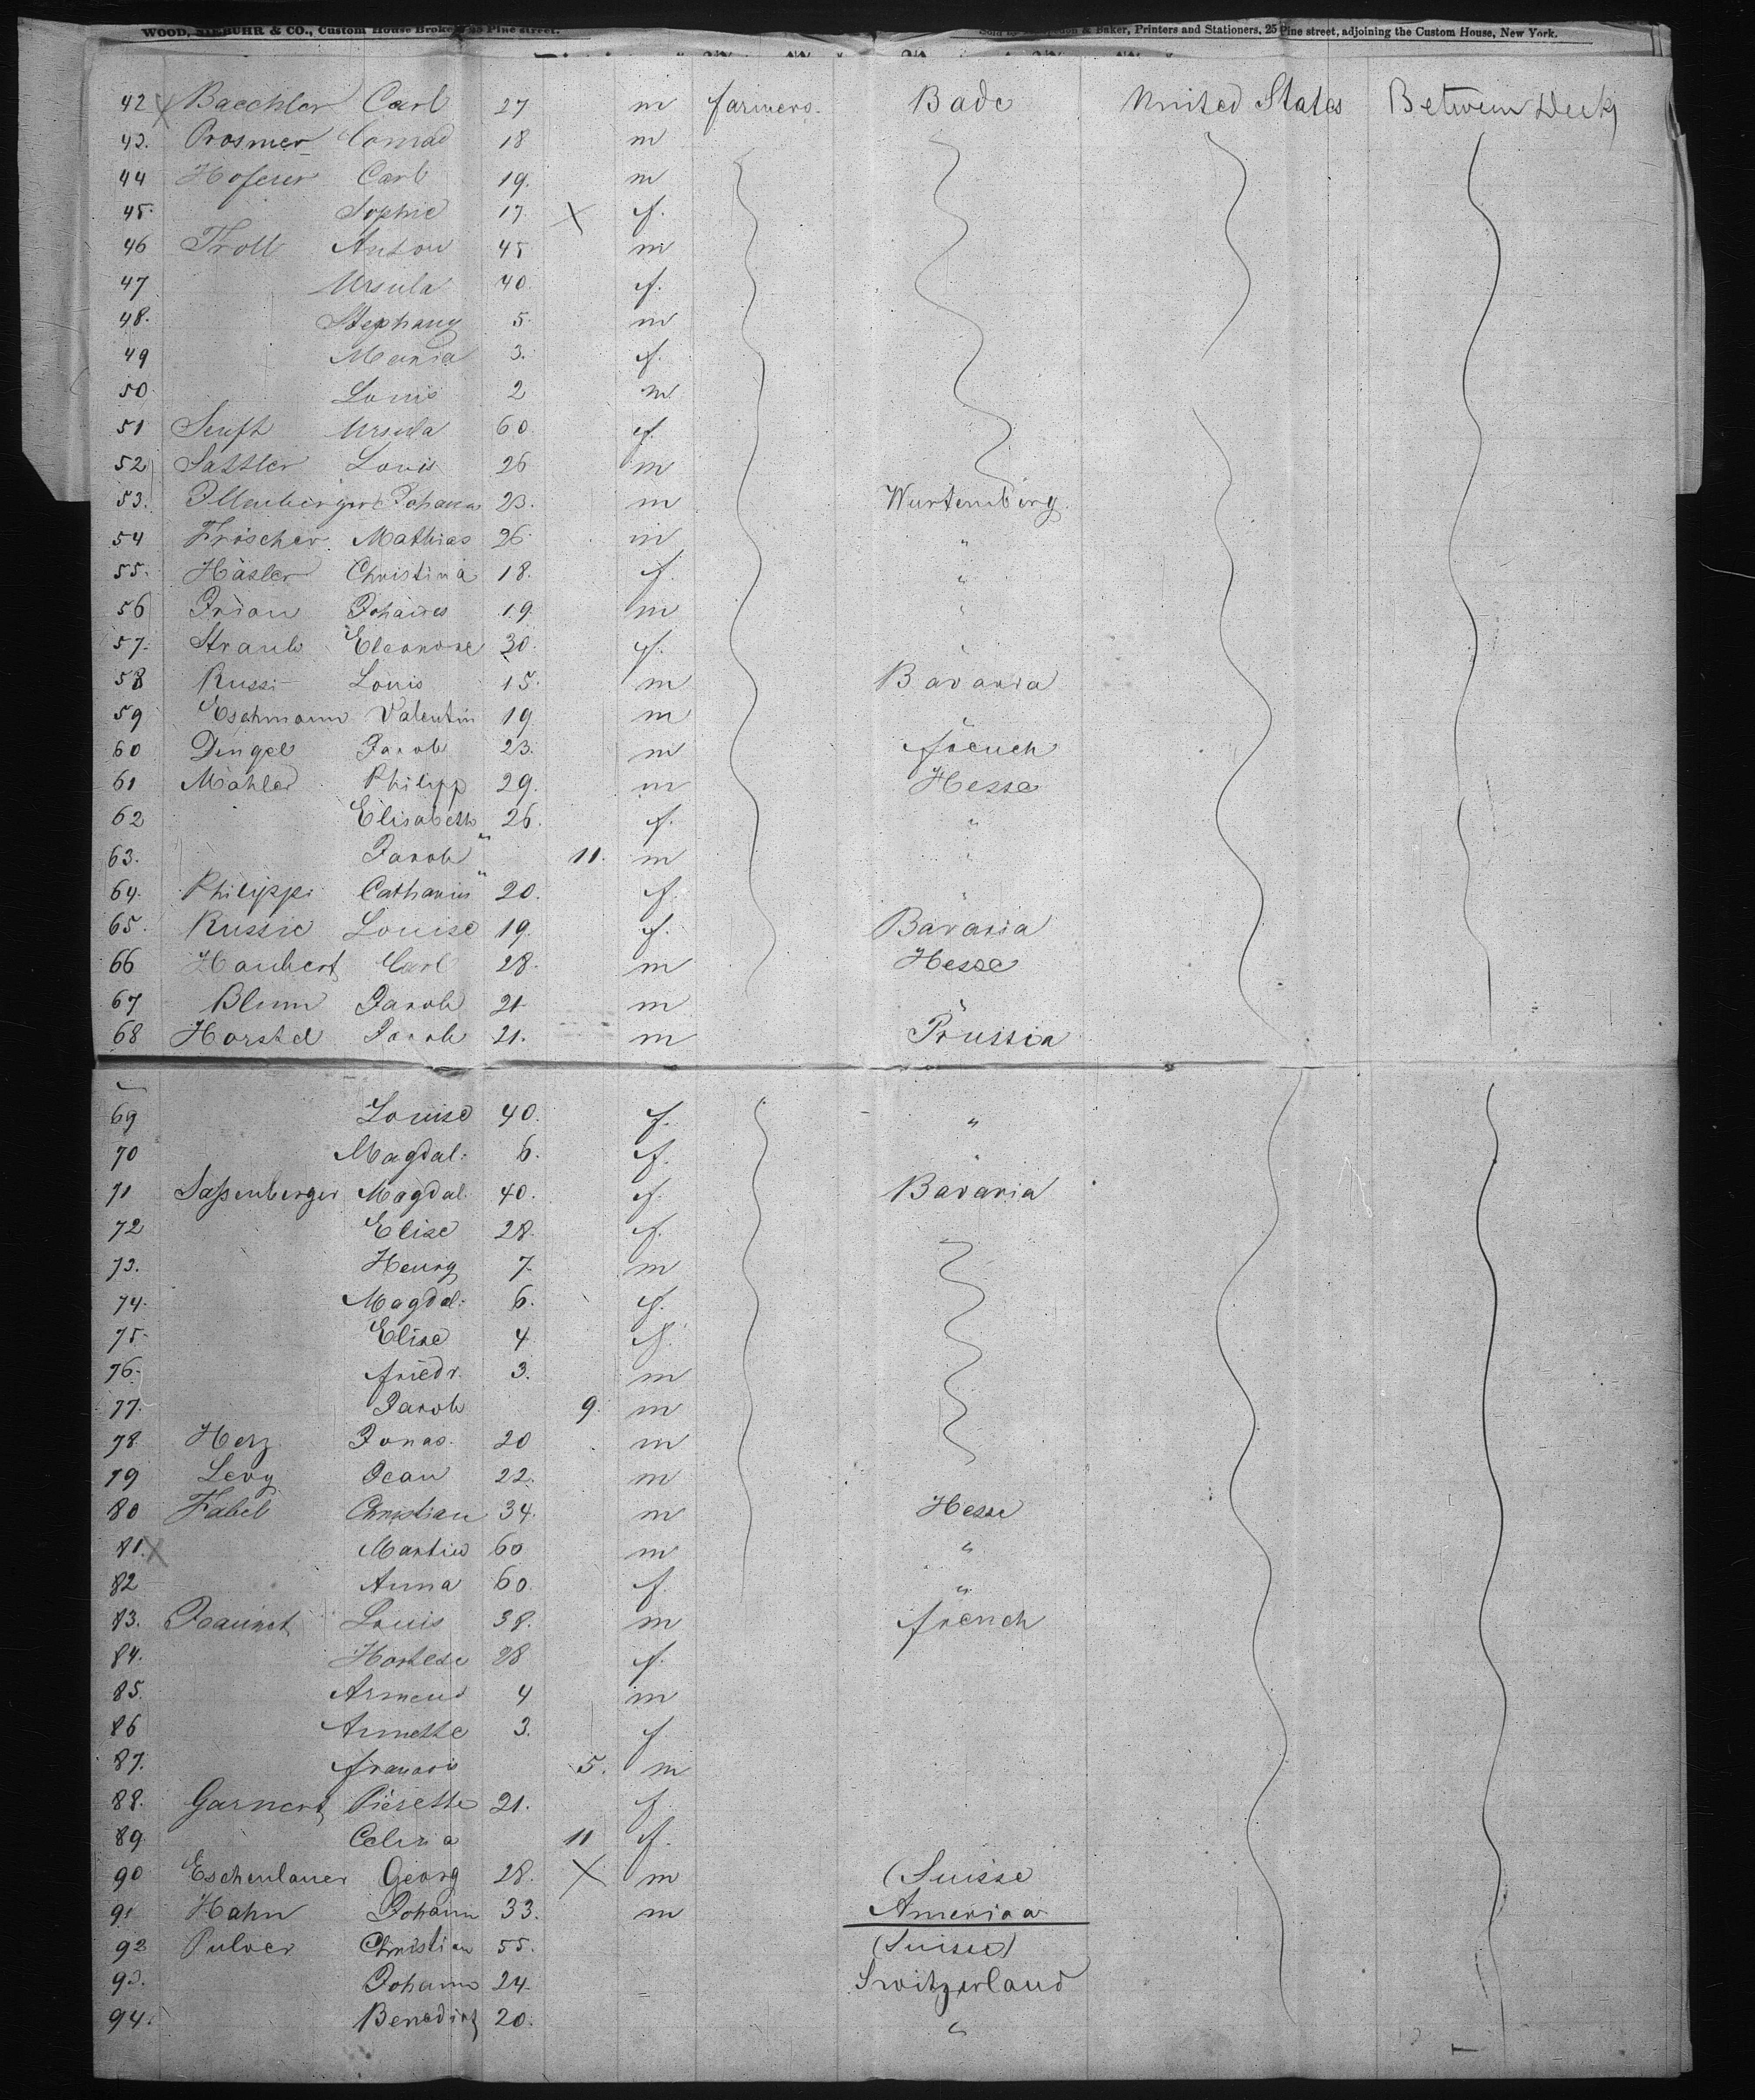 WOOD, NIEBUHR & CO., Custom House Brokers 25 Pine street. Sold by & Baker, Printers and Stationers, 25 Pine street, adjoining the Custom House, New York.
42 Baechler Carl 27 m farmers. Bade United States Between Deck
43. Prosmer Conrad 18 m
44 Hoferer Carl 19. m
45. Sophie 17. X f.
46 Troll Anton 45 m
47 Ursula 40. f.
48. Stephany 5. m
49 Maria 3. f.
50 Louis 2 m
51 Senft Ursula 60. f.
52 Sattler Louis 26 m
53. Illenberger Johann 23. m Wurtemberg
54 Fröscher Mathias 26. m "
55. Häsler Christina 18. f. "
56 Irion Johannes 19 m "
57. Straub Eleonore 30. f. "
58 Russi Louis 15. m Bavaria
59 Eschmann Valentin 19. m "
60 Dingel Jacob 23. m french
61 Mahler Philipp 29. m Hesse
62 Elisabeth 26. f. "
63. Jacob 11. m "
64. Philippi Catharin 20. f. "
65. Russie Louise 19. f. Bavaria
66 Haubert Carl 28. m Hesse
67 Blum Jacob 21. m "
68 Horstel Jacob 21. m Prussia
69 Louise 40. f. "
70 Magdal: 6. f. "
71 Saßenberger Magdal. 40. f. Bavaria
72 Elise 28. f.
73. Henry 7. m
74. Magdal: 6. f.
75. Elise 4 f.
76. friedr. 3. m
77. Jacob 9. m
78. Herz Jonas. 20 m
79 Levy Jean 22. m
80 Fabel Christian 34. m Hesse
81. X Martin 60 m "
82 Anna 60. f. "
83. Jeannot Louis 38. m french
84. Hortese 28 f.
85. Armend 4 m
86 Annette 3. f
87. francois 5. m
88. Garnert Pierette 21. f
89. Celina 11 f.
90 Eschenlauer Georg 28. X m (Suisse
91 Hahn Johann 33. m America
92 Pulver Christian 55. (Suisse)
93. Johann 24. Switzerland
94. Benedict 20. "